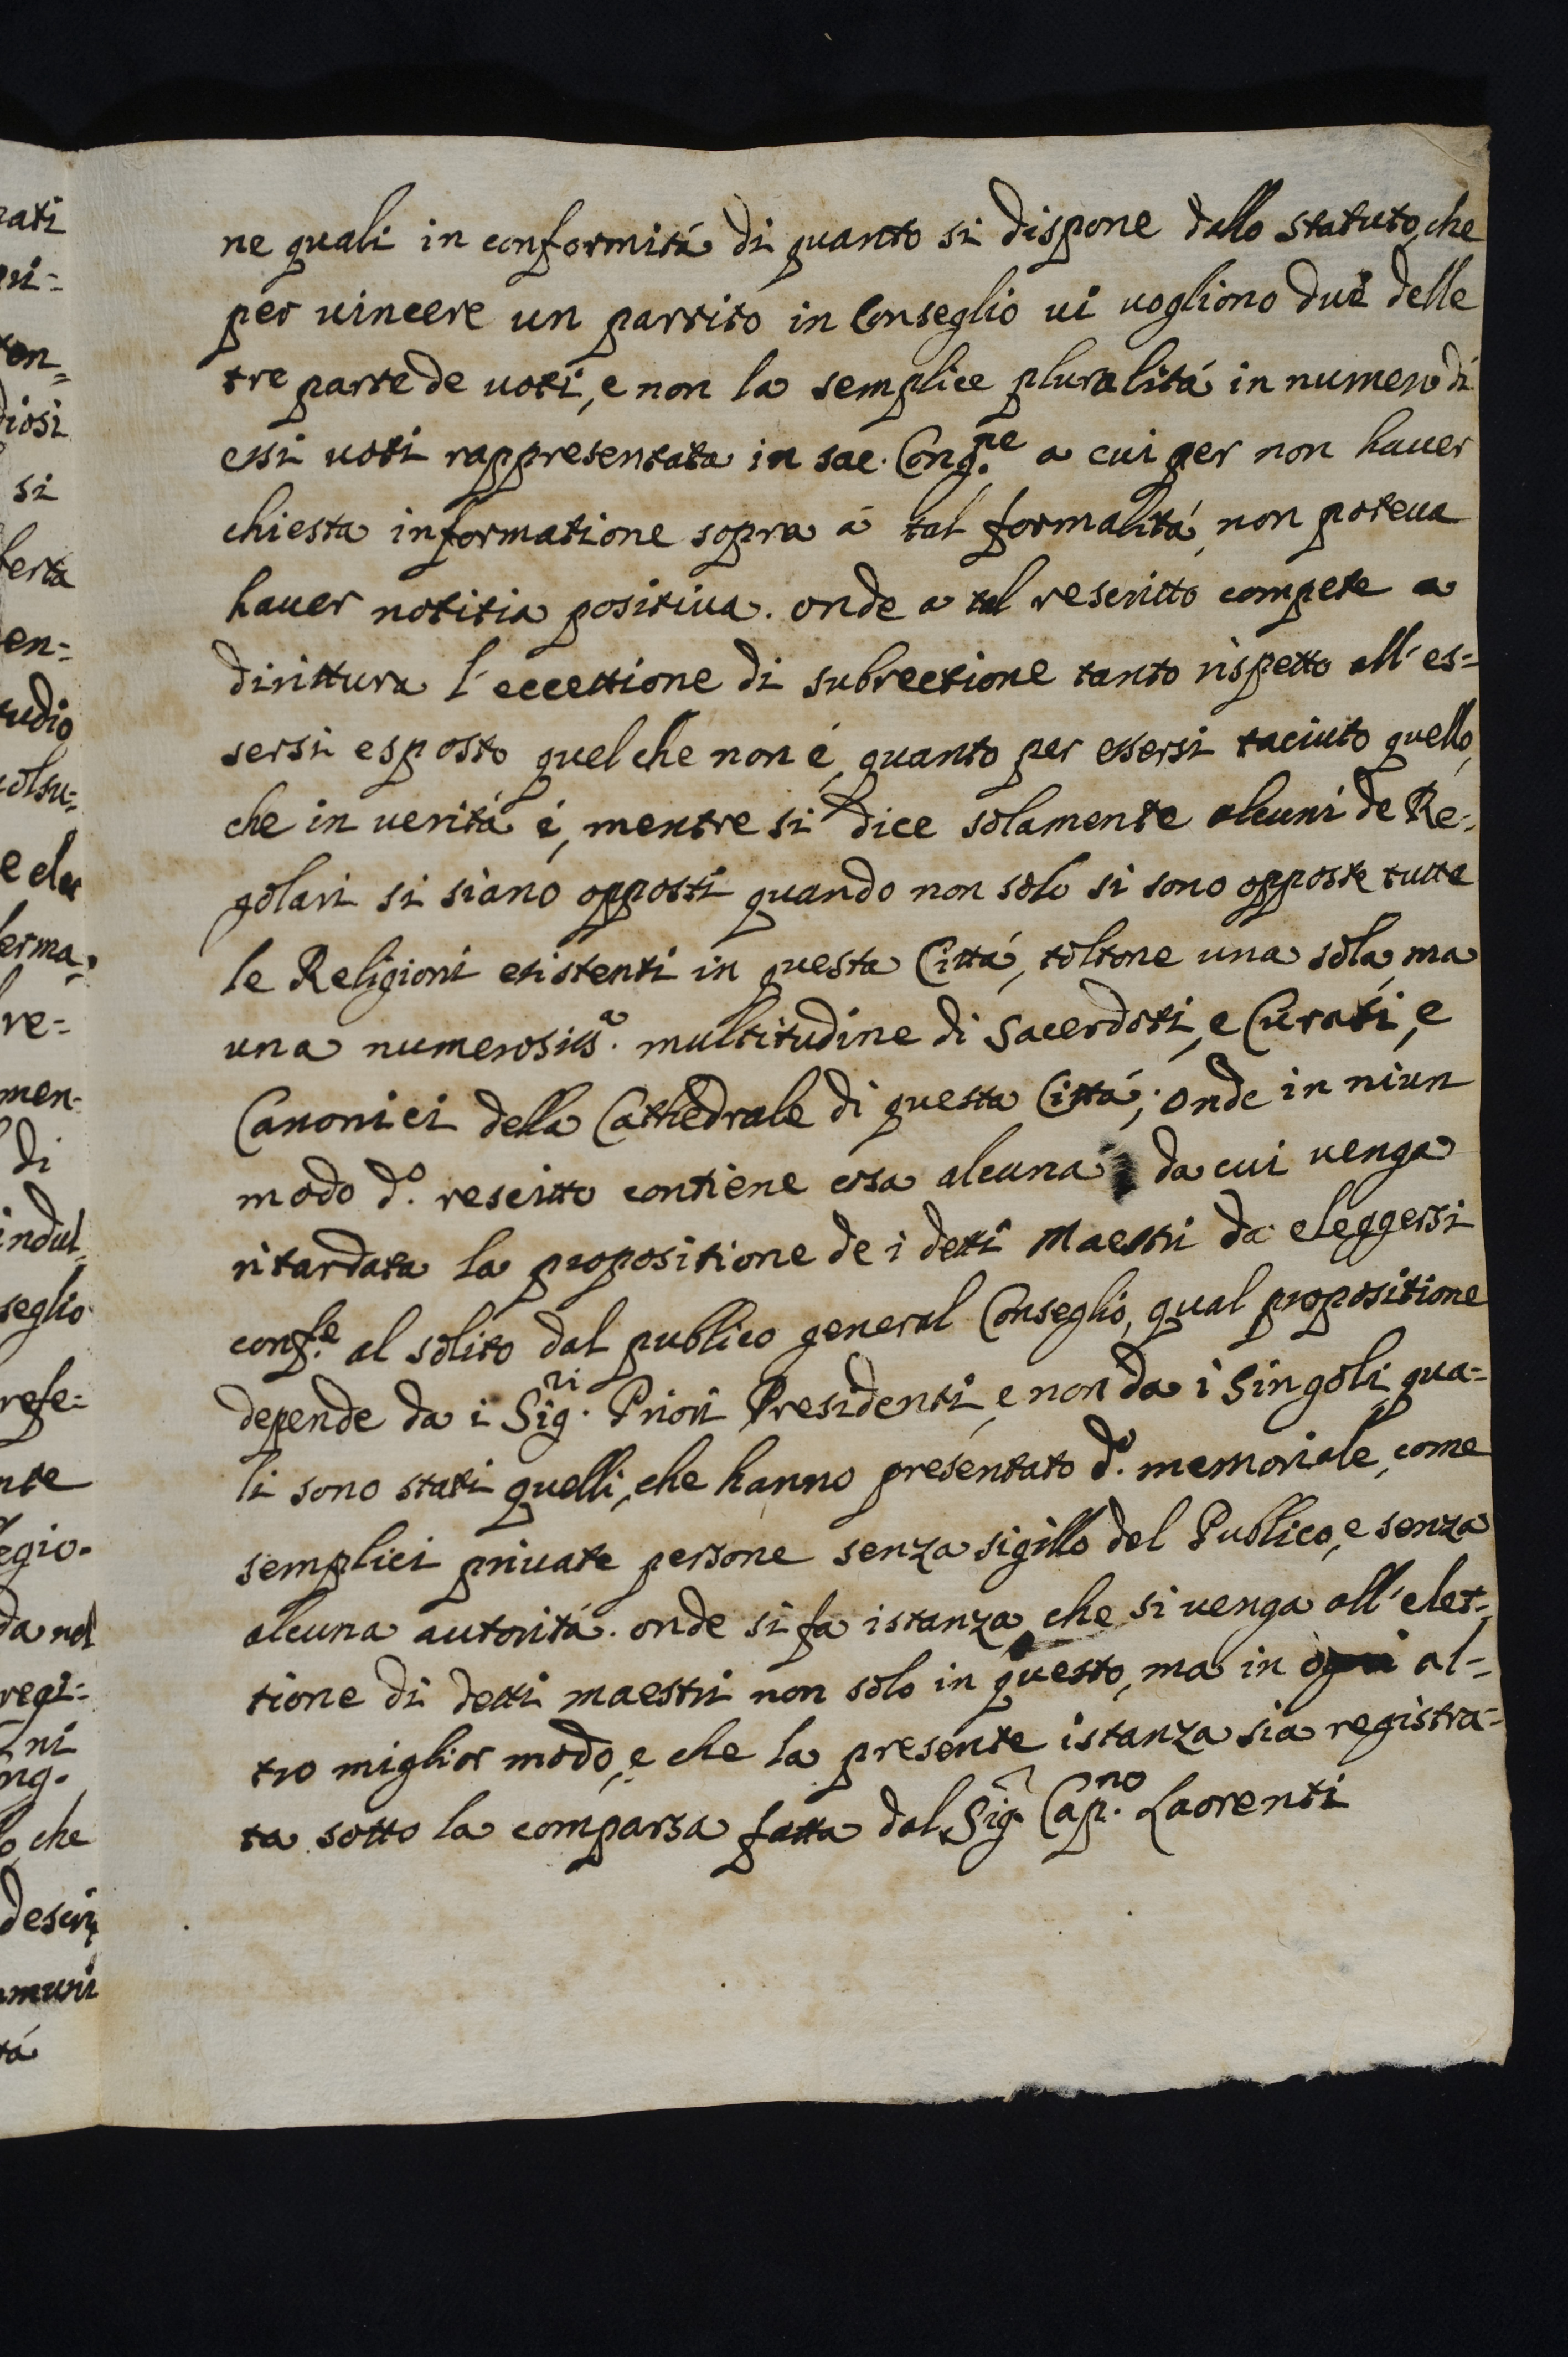 ne quali in conformitá di quanto si dispone dallo statuto, che
per uincere un partito in Conseglio ui uogliono due delle
tre parte de uoti, e non la semplice pluralitá in numero di
essi uoti rappresentata in sac. Cong.ne a cui per non hauer
chiesta informatione sopra á tal formalitá, non poteua
hauer notitia positiua. onde a tal rescritto compete a
dirittura l'eccettione di subrectione tanto rispetto all'es=
sersi esposto quel che non é, quanto per essersi taciuto quello,
che in veritá é, mentre si dice solamente alcuni de Re=
golari si siano opposti quando non solo si sono opposte tutte
le Religioni esistenti in questa Cittá, toltone una sola, ma
una numerosiss.a multitudine di Sacerdoti, e Curati, e
Canonici della Cathedrale di questa Cittá; onde in niun
modo d.o rescritto contiene cosa alcuna da cui uenga
ritardata la propositione de i detti Maestri da eleggersi
conf.e al solito dal publico general Conseglio, qual propositione
depende da i Sig.ri Priori Presidenti, e non da i singoli, qua=
li sono stati quelli, che hanno presentato d.o memoriale, come
semplici priuate persone senza sigillo del Publico, e senza
alcuna autoritá. onde si fa istanza, che si uenga all'elet=
tione di detti maestri non solo in questo, ma in ogni al=
tro miglior modo, e che la presente istanza sia registra=
ta sotto la comparsa fatta dal Sig.r Cap.no Laorenti
ati
si
en=
tudio
erma=
re=
men=
di
indul=
seglio
refe=
nte
regi=
ni
che
muni
tá